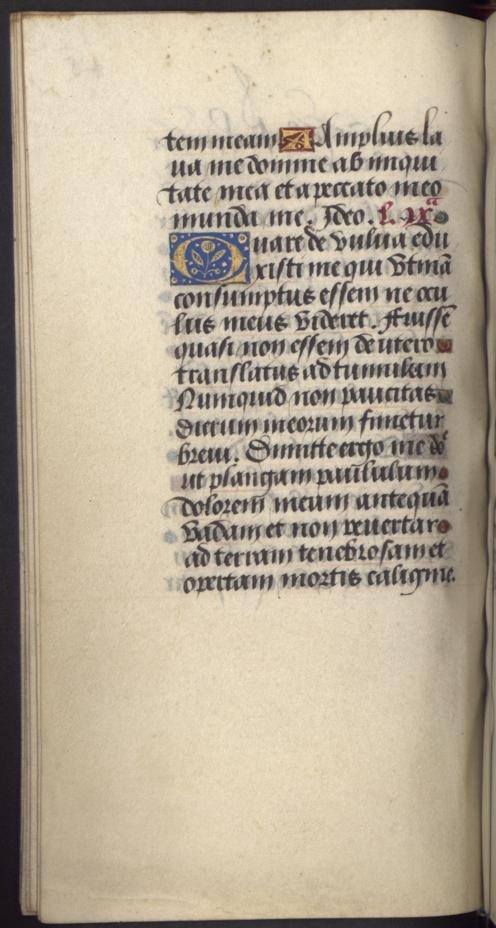 tem meam A Amplius la
va me domine ab iniqui
tate mea et a peccato meo
munda me. Ideo. l. ixª
Quare de vulva edu
xisti me qui vtinã
consumptus essem ne ocu
lus meus videret. Fuissẽ
quasi non essem de utero
translatus ad tumulum
Numquid non paucitas
dierum meorum finietur
brevi. Dimitte ergo me dñe
ut plangam paululum
dolorem meum antequã
vadam et non revertar
ad terram tenebrosam et
opertam mortis caligine.